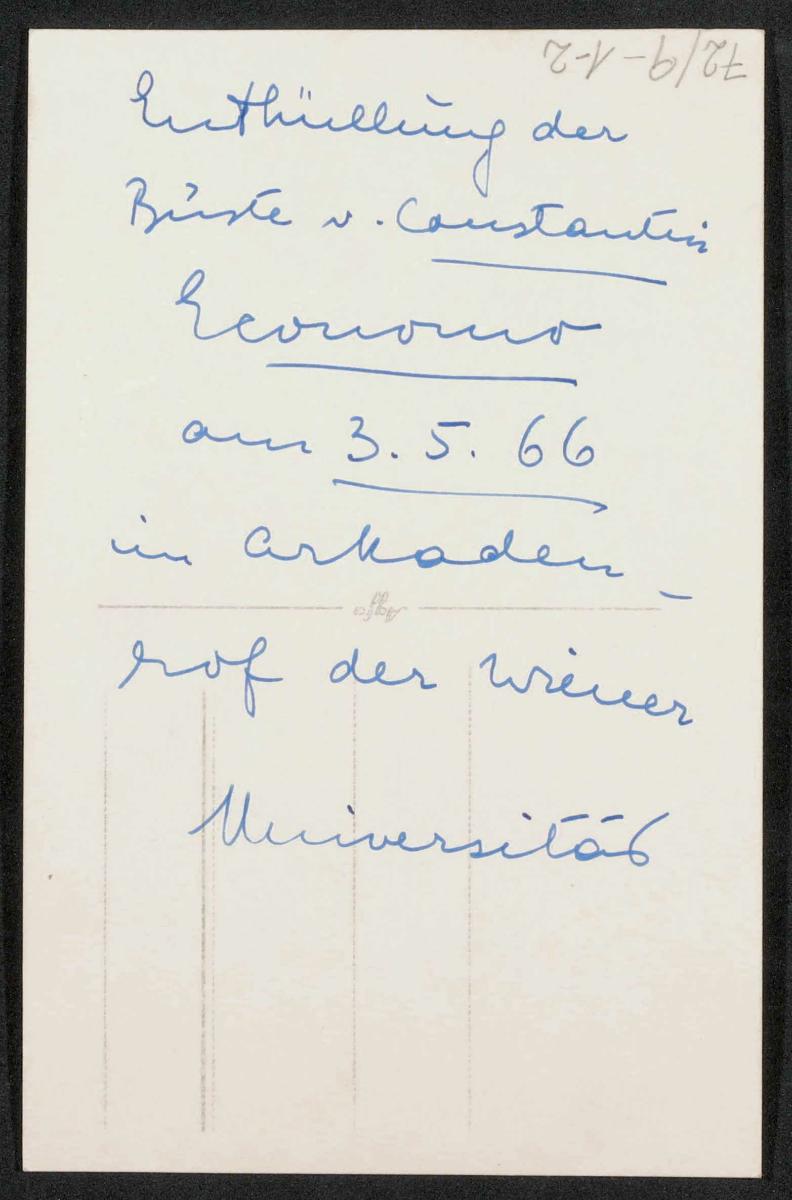 72/9-1-2
Enthüllung der
Büste v. Constantin
Economo
am 3.5.66
im Arkaden-
Agfa
hof der Wiener
Universität